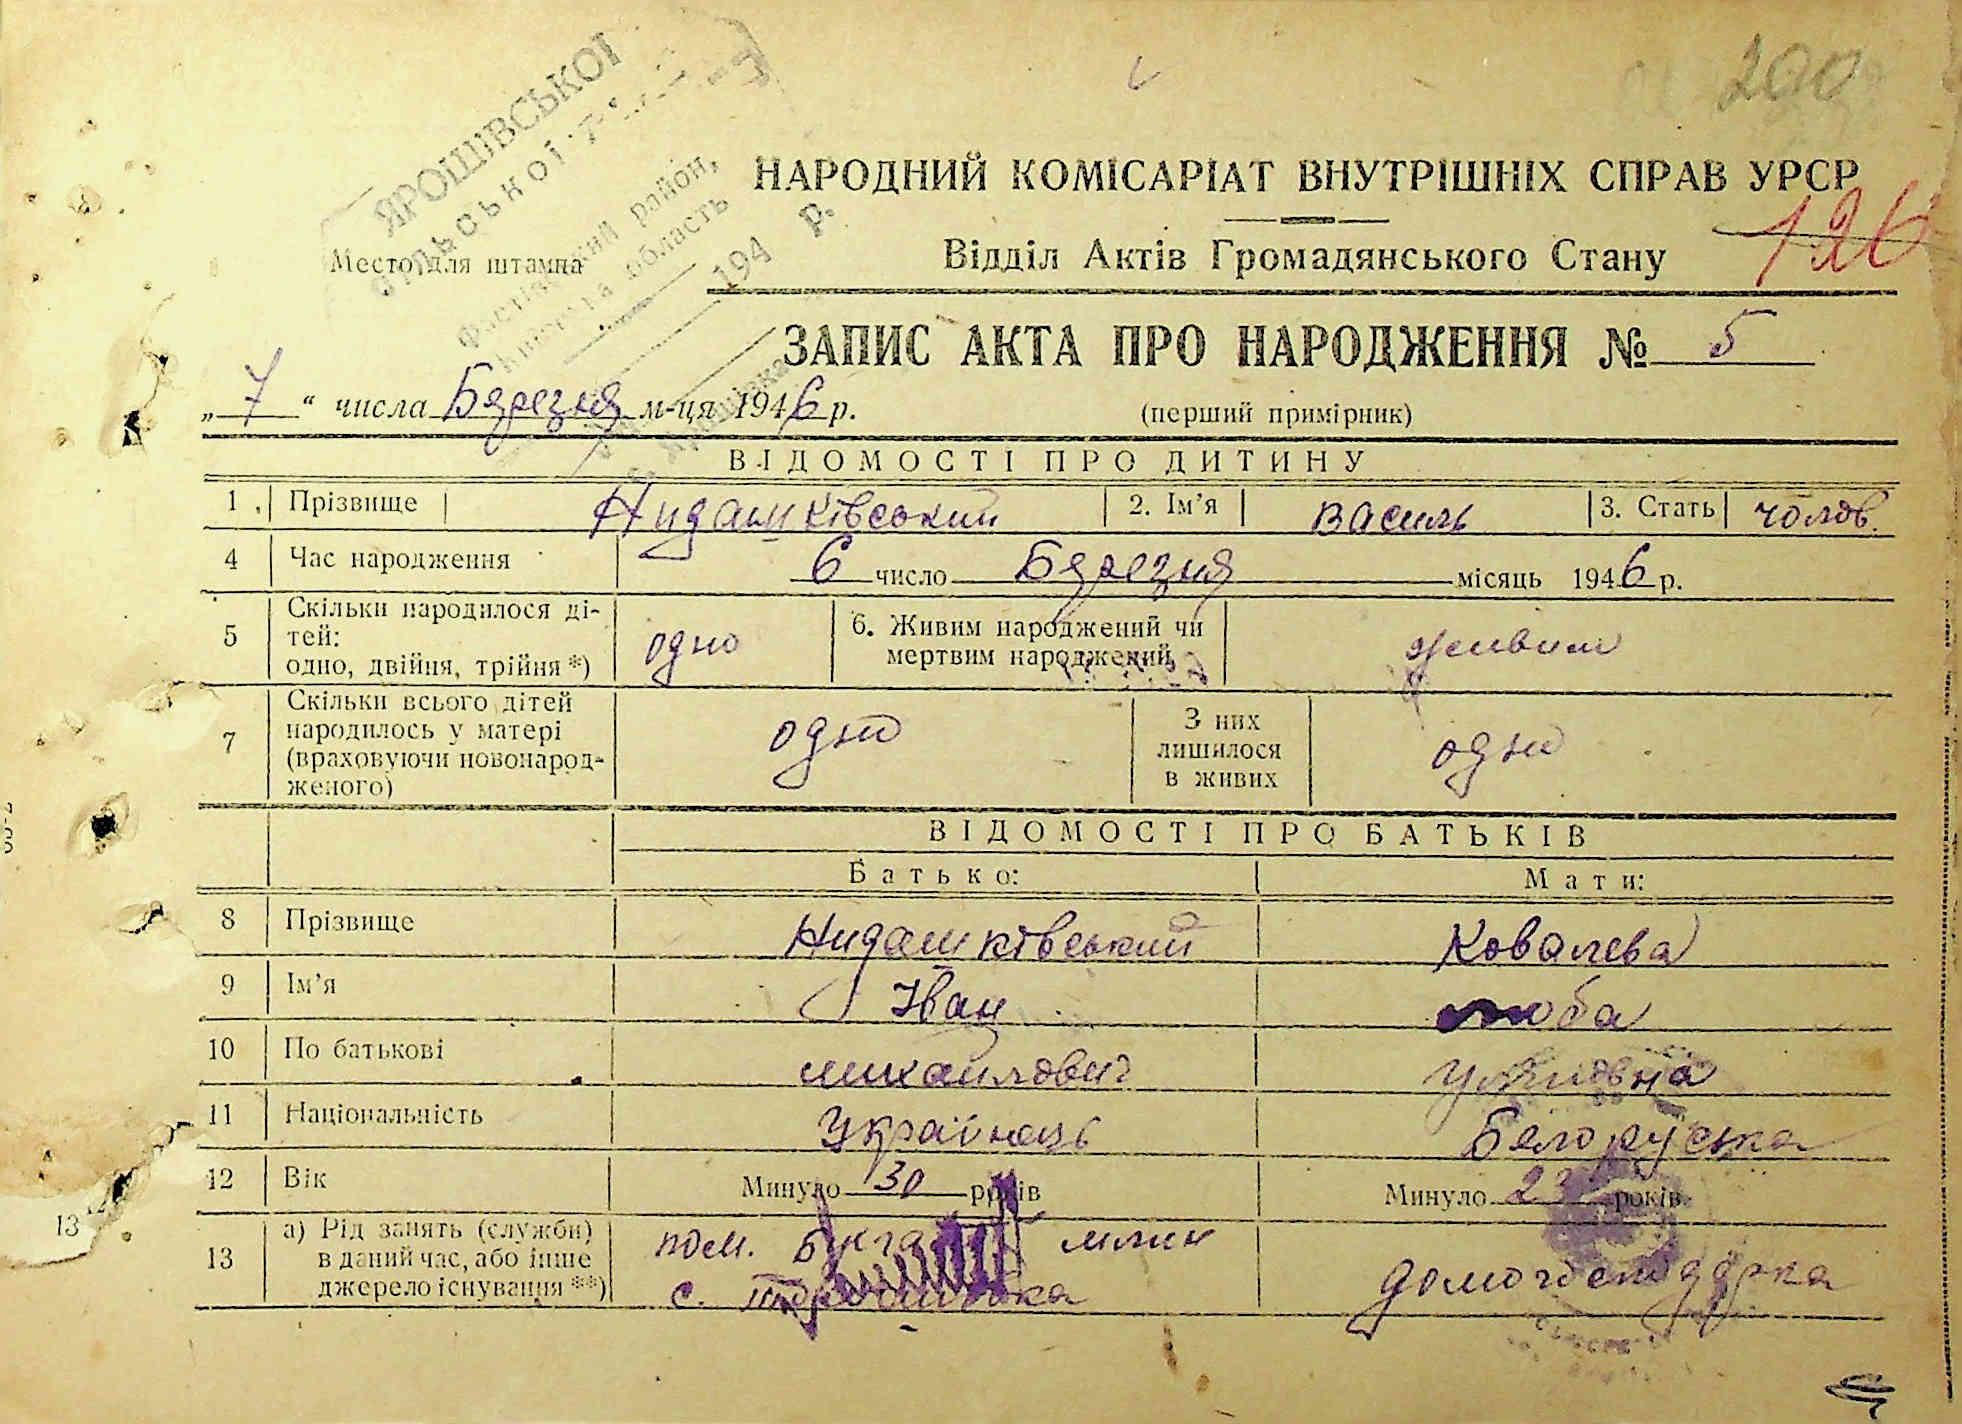 200
ЯРОШІВСЬКОЇ
сільської
Фастівський район,
Київська область
194 р.
Место для штампа
НАРОДНИЙ КОМІСАРІАТ ВНУТРІШНІХ СПРАВ УРСР
126
Відділ Актів Громадянського Стану
ЗАПИС АКТА ПРО НАРОДЖЕННЯ № 5
„ 7 “ числа Бярезня м-ця 1946 р.
(перший примірник)
ВІДОМОСТІ ПРО ДИТИНУ
1 Прізвище Нидашківський 2. Ім’я Василь 3. Стать чолов.
4 Час народження 6 число Бярезня місяць 1946 р.
5 Скільки народилося ді-
тей:
одно, двійня, трійня *) одно 6. Живим народжений чи
мертвим народжений живим
7 Скільки всього дітей
народилось у матері
(враховуючи новонарод-
женого) одно З них
лишилося
в живих одно
ВІДОМОСТІ ПРО БАТЬКІВ
Батько: Мати:
8 Прізвище Нидашківський Ковалева
9 Ім’я Іван Люба
10 По батькові Михайлович
11 Національність Українець Бялоруська
12 Вік Минуло 30 років Минуло 23 років
13 а) Рід занять (служби)
в даний час, або інше
джерело існування **) пом. млин
с. домогосподарка
13